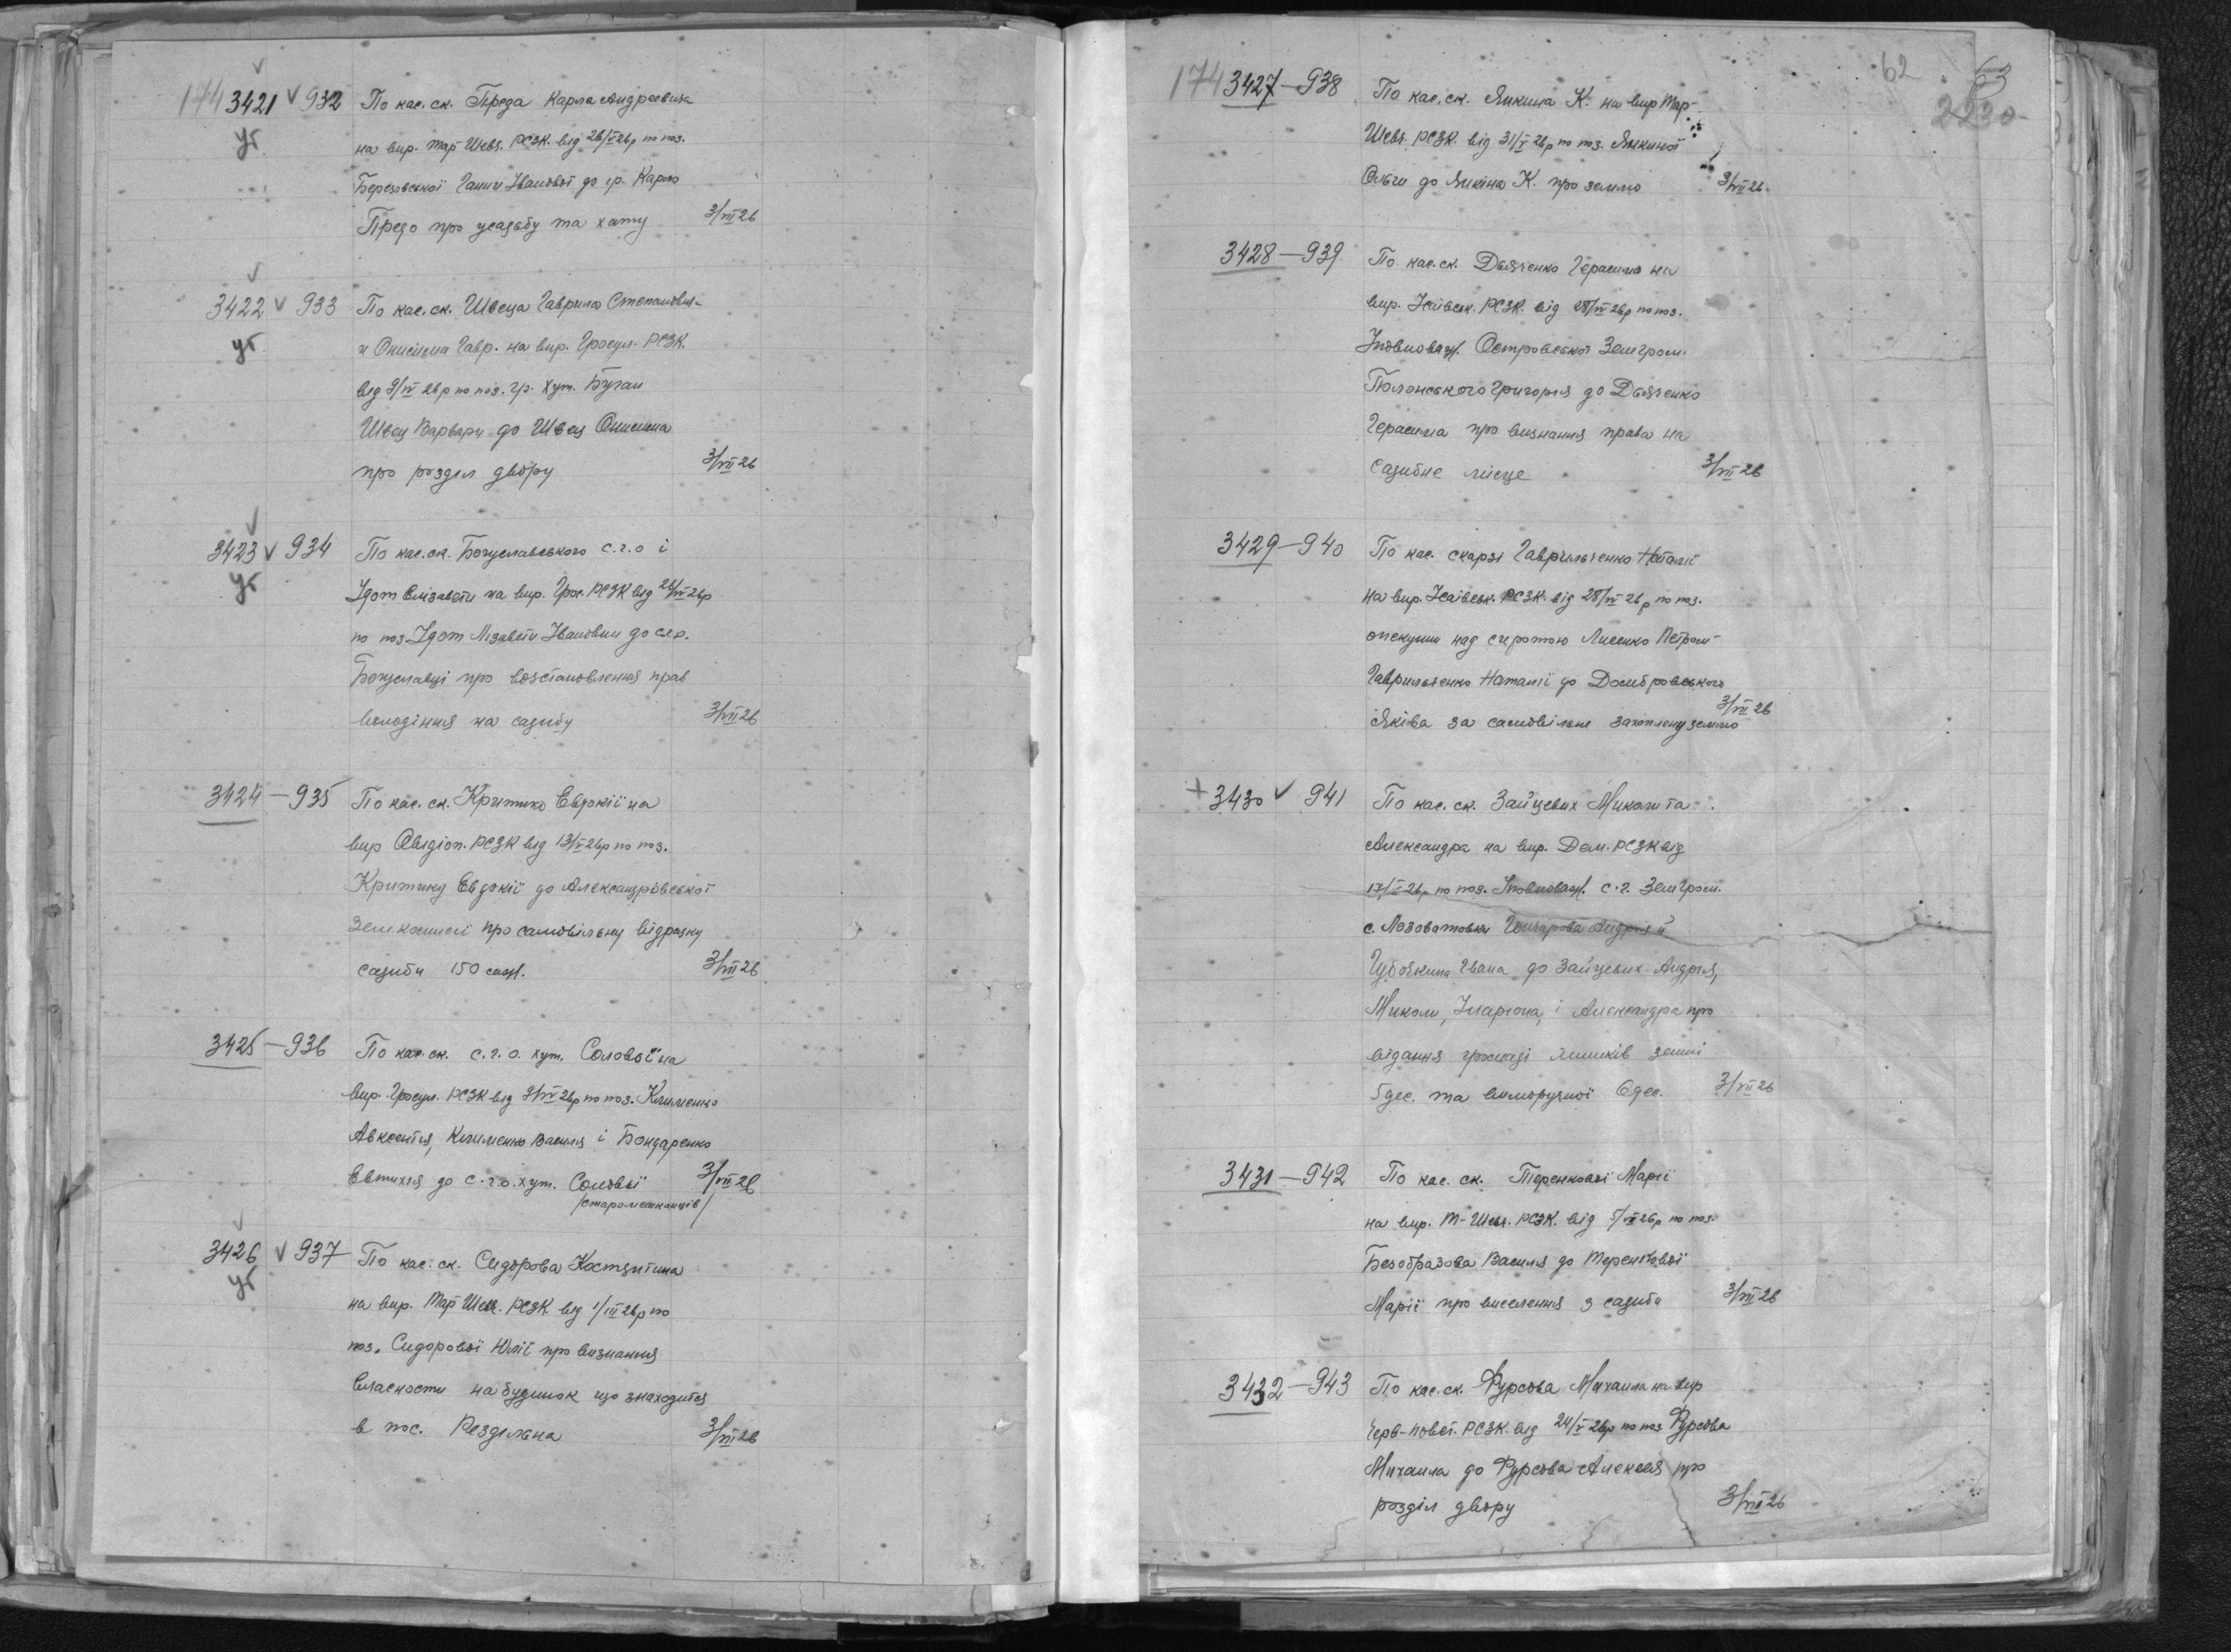 174 3421 v 932 По кас. ск. Преда Карла Андреевича
ук
на вир. Тар-Шевч. РСЗК. від 26/V 26р по поз.
Березовської Ганни Іванової до гр. Карло
Предо про усадьбу та хату 3/VII 26
3422 v 933 По кас. ск. Швеца Гаврила Степанович
ук
и Онисима Гавр. на вир. Гросул. РСЗК.
від 9/IV 26р по поз. гр. хут. Бугаи
Швец Варвари до Швец Онисима
про розділ двору 3/VII 26
3423 v 934 По кас. ск. Богуславського с.г.о і
ук
Удот Елізавети на вир. Грос. РСЗК від 26/IV 26р
по поз Удот Лізавети Івановни до сел.
Богуславці про возстановлення прав
володіння на садибу 3/VII 26
3424 — 935 По кас. ск. Критико Евдокії на
вир Овидіоп. РСЗК від 13/V 26р по поз.
Критику Евдокії до Александрівської
Земкомисії про самовільну відрізку
садиби 150 саж. 3/VII 26
3425 — 936 По кас. ск. с.г.о. хут. Соловьї на
вир. Гросул. РСЗК від 9/IV 26р по поз. Клименко
Авксентія, Клименко Василя і Бондаренко
Евтихія до с.г.о. хут. Соловьї 3/VII 26
/старомешканців/
3426 v 937 По кас. ск. Сидорова Костянтина
ук
на вир. Тар-Шевч. РСЗК. від 1/III 26р по
поз. Сидорової Юлії про визнання
власности на будинок що знаходится
в пос. Роздільна 3/VII 26
62 63
2230
174 3427 — 938 По кас. ск. Якина К. на вир Тар-
Шевч. РСЗК. від 31/V 26р по поз. Якиної
Ольги до Якіна К. про землю 3/VII 26
3428 — 939 По кас. ск. Дьяченко Герасима на
вир. Ісаівськ. РСЗК. від 28/IV 26р по поз.
Уповноваж. Островської Земгром.
Полянського Григорія до Дьяченко
Герасима про визнання права на
садибне місце 3/VII 26
3429 — 940 По кас. скарзі Гаврильченко Наталії
на вир. Ісаівськ. РСЗК. від 28/IV 26р по поз.
опекуни над сиротою Лисенко Петром
Гаврильченко Наталії до Домбровського
Яківа за самовільне захоплену землю 3/VII 26
+ 3430 v 941 По кас. ск. Зайцевих Миколи та
Александра на вир. Дем. РСЗК від
17/V 26р по поз. Уповноваж. с.г. Земгром.
с. Лозоватовка Гончарова Андрія й
Івана до Зайцевих Андрія,
Миколи, Іларіона, і Александра про
відання громаді лишків землі
5 дес. та 6 дес. 3/VII 26
3431 — 942 По кас. ск. Теренкової Марії
на вир. Т-Шевч. РСЗК. від 5/IV 26р по поз.
Безобразова Василя до Теренкової
Марії про виселення з садиби 3/VII 26
3432 — 943 По кас. ск. Фурсова Михаила на вир
Черв-повст. РСЗК. від 24/V 26р по поз Фурсова
Михаила до Фурсова Алексея про
розділ двору 3/VII 26